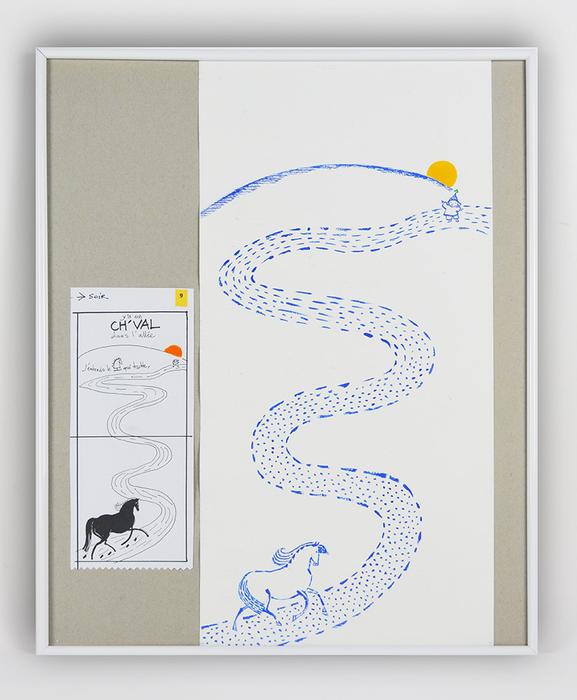 → SOIR
9
v'là un
CH'VAL
dans l'allée
J'entends le
qui trotte,